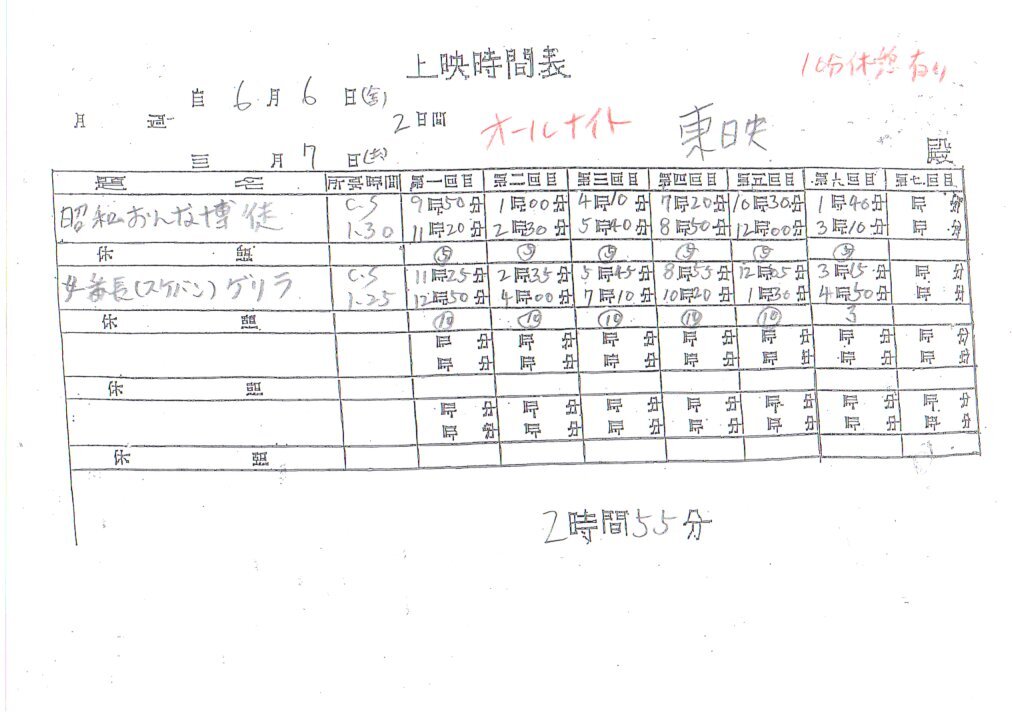 上映時間表
自 6月 6日(金)
月 週 2日間 オールナイト 東映 殿
至 月 7日(土)
題 名 所要時間 第一回目 第二回目 第三回目 第四回目 第五回目 第六回目 第七回目
昭和おんな博徒 C-S 9時50分 1時00分 4時10分 7時20分 10時30分 1時40分 時 分
1-30 11時20分 2時30分 5時40分 8時50分 12時00分 3時10分 時 分
休 憩 ⑤ ⑤ ⑤ ⑤ ⑤ ⑤
女番長(スケバン)ゲリラ C-S 11時25分 2時35分 5時45分 8時55分 12時05分 3時15分 時 分
1-25 12時50分 4時00分 7時10分 10時20分 1時30分 4時50分 時 分
休 憩 ⑩ ⑩ ⑩ ⑩ ⑩ 3
時 分 時 分 時 分 時 分 時 分 時 分 時 分
時 分 時 分 時 分 時 分 時 分 時 分 時 分
休 憩
時 分 時 分 時 分 時 分 時 分 時 分 時 分
時 分 時 分 時 分 時 分 時 分 時 分 時 分
休 憩
2時間55分